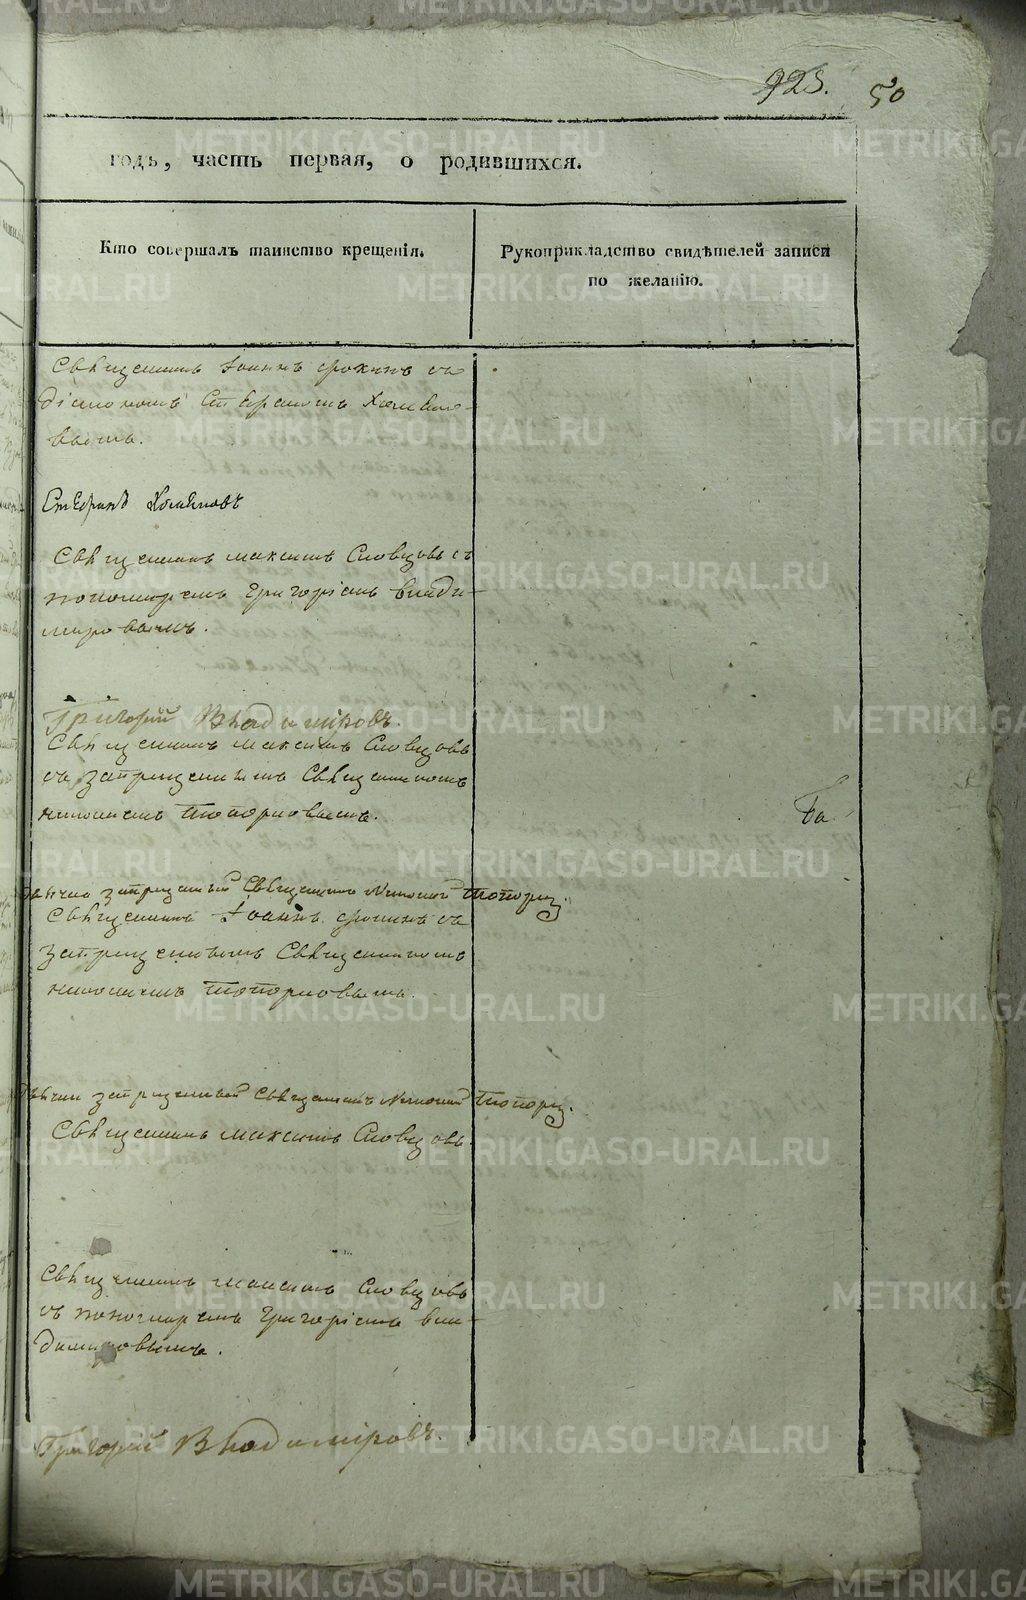 923. 50
годъ, часть первая, о родившихся.
Кто совершалъ таинство крещенія.
Рукоприкладство свидѣтелей записи
по желанію.
Священникъ Іоаннъ с
діакономъ Стефаномъ Хомяко-
вымъ.
Стефанъ Хомяковъ
Священникъ Максимъ Словцовъ съ
пономаремъ Григоріемъ Влади-
мировымъ.
Григорій Владиміровъ.
Священникъ Максимъ Словцовъ
съ запрещеннымъ Священникомъ
Топорковымъ.
запрещенный Священникъ
Священникъ Іоаннъ съ
запрещеннымъ Священникомъ
Топорковымъ.
запрещенный Священникъ
Священникъ Максимъ Словцовъ
Священникъ Максимъ Словцовъ
съ пономаремъ Григоріемъ Вла-
димировымъ.
Григорій Владиміровъ.
METRIKI.GASO-URAL.RU